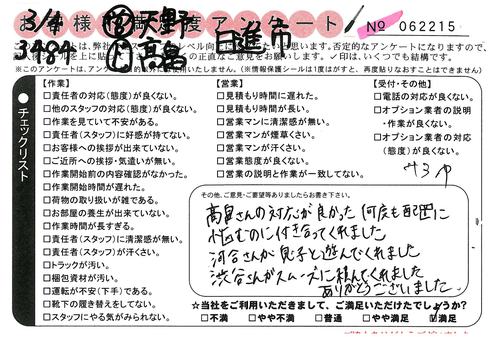 お客様満足度アンケート
3/4
3484
天野
日進市
No 062215
※このアンケートは、アンケート
✓印は、いくつでも結構です。
(※情報保護シールは1度はがすと、再度貼りなおすことはできません)
チェックリスト
【作業】
□責任者の対応(態度)が良くない。
□他のスタッフの対応(態度)が良くない。
□作業を見ていて不安がある。
□責任者(スタッフ)に好感が持てない。
□お客様への挨拶が出来ていない。
□ご近所への挨拶・気遣いが無い。
□作業開始前の内容確認がなかった。
□作業開始時間が遅れた。
□荷物の取り扱いが雑である。
□お部屋の養生が出来ていない。
□作業時間が長すぎる。
□責任者(スタッフ)に清潔感が無い。
□責任者(スタッフ)が汗くさい。
□トラックが汚い。
□梱包資材が汚い。
□運転が不安(下手)である。
□靴下の履き替えをしてない。
□スタッフにやる気がみられない。
【営業】
□見積もり時間に遅れた。
□見積もり時間が長い。
□営業マンに清潔感が無い。
□営業マンが煙草くさい。
□営業マンが汗くさい。
□営業態度が良くない。
□営業の説明と作業が一致してない。
【受付・その他】
□電話の対応が良くない。
□オプション業者の説明
・作業が良くない。
□オプション業者の対応
(態度)が良くない。
その他、ご意見・ご要望等ありましたらお書き下さい。
高畠さんの対応が良かった 何度も配置に
悩むのに付き合ってくれました
河合さんが息子と遊んでくれました
渋谷さんがスムーズに積んでくれました
ありがとうございました
☆当社をご利用いただきまして、ご満足いただけたでしょうか?
□不満 □やや不満 □普通 □やや満足 ☑満足